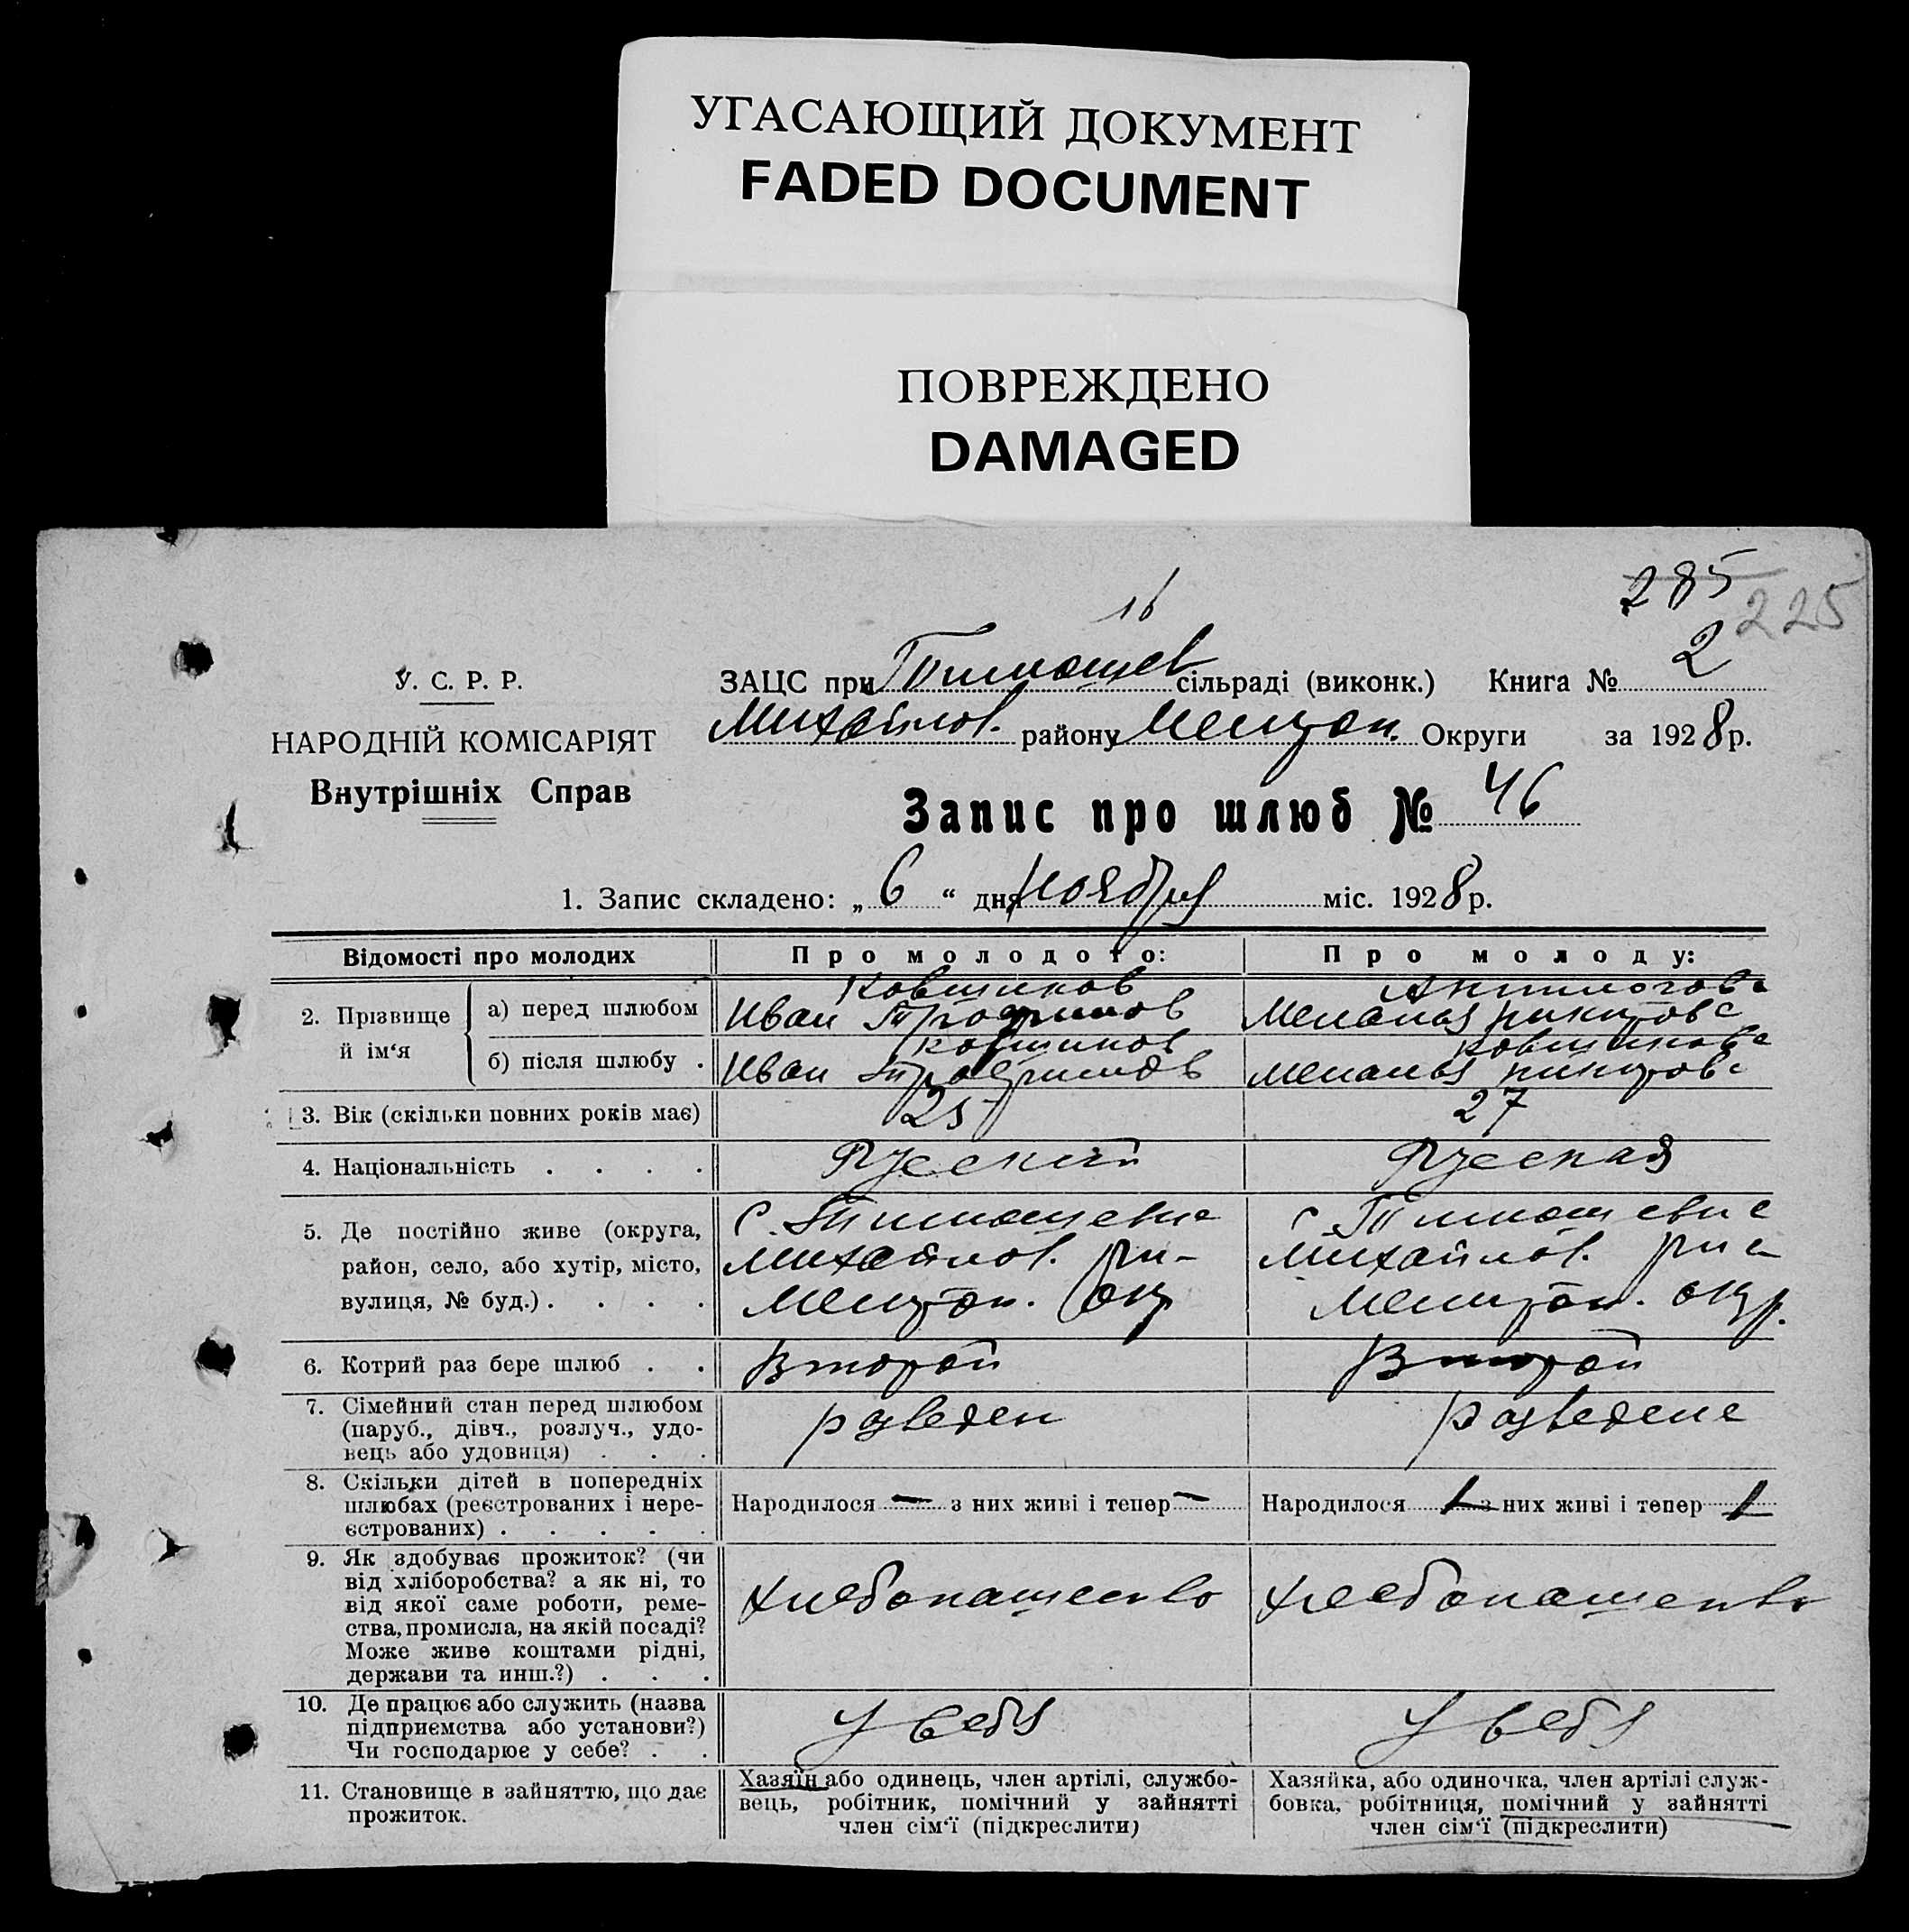 УГАСАЮЩИЙ ДОКУМЕНТ
FADED DOCUMENT
ПОВРЕЖДЕНО
DAMAGED
285
225
16
У. С. Р. Р.
НАРОДНІЙ КОМІСАРІЯТ
Внутрішніх Справ
ЗАЦС при Тимошев сільраді (виконк.) Книга № 2
Михайлов. району Мелитоп. Округи за 1928 р.
Запис про шлюб № 46
1. Запис складено: „ 6 “ дня Ноября міс. 1928 р.
Відомості про молодих
Про молодого:
Про молоду:
2. Прізвище й ім‘я
а) перед шлюбом
Ковшиков
Иван Трофимов
Анпилогова
Меланья Никитова
б) після шлюбу .
Ковшиков
Иван Трофимов
Ковшикова
Меланья Никитова
3. Вік (скільки повних років має)
25
27
4. Національність . . . .
Русский
Русская
5. Де постійно живе (округа,
район, село, або хутір, місто,
вулиця, № буд.) . . . .
С. Тимошевка
Михайлов. рн-
Мелитоп. окр
с Тимошевка
Михайлов. рна
Мелитоп. окр.
6. Котрий раз бере шлюб . .
Второй
Второй
7. Сімейний стан перед шлюбом
(паруб., дівч., розлуч., удо-
вець або удовиця) . . .
разведен
разведена
8. Скільки дітей в попередніх
шлюбах (реєстрованих і нере-
єстрованих) . . . . .
Народилося — з них живі і тепер —
Народилося 1 з них живі і тепер 1
9. Як здобуває прожиток? (чи
від хліборобства? а як ні, то
від якої саме роботи, реме-
ства, промисла, на якій посаді?
Може живе коштами рідні,
держави та инш.?) . . .
Хлебопашенство
Хлебопашенство
10. Де працює або служить (назва
підприємства або установи?)
Чи господарює у себе? . .
У себя
У себя
11. Становище в зайняттю, що дає
прожиток.
Хазяїн або одинець, член артілі, службо-
вець, робітник, помічний у зайнятті
член сім‘ї (підкреслити)
Хазяйка, або одиночка, член артілі служ-
бовка, робітниця, помічний у зайнятті
член сім‘ї (підкреслити)